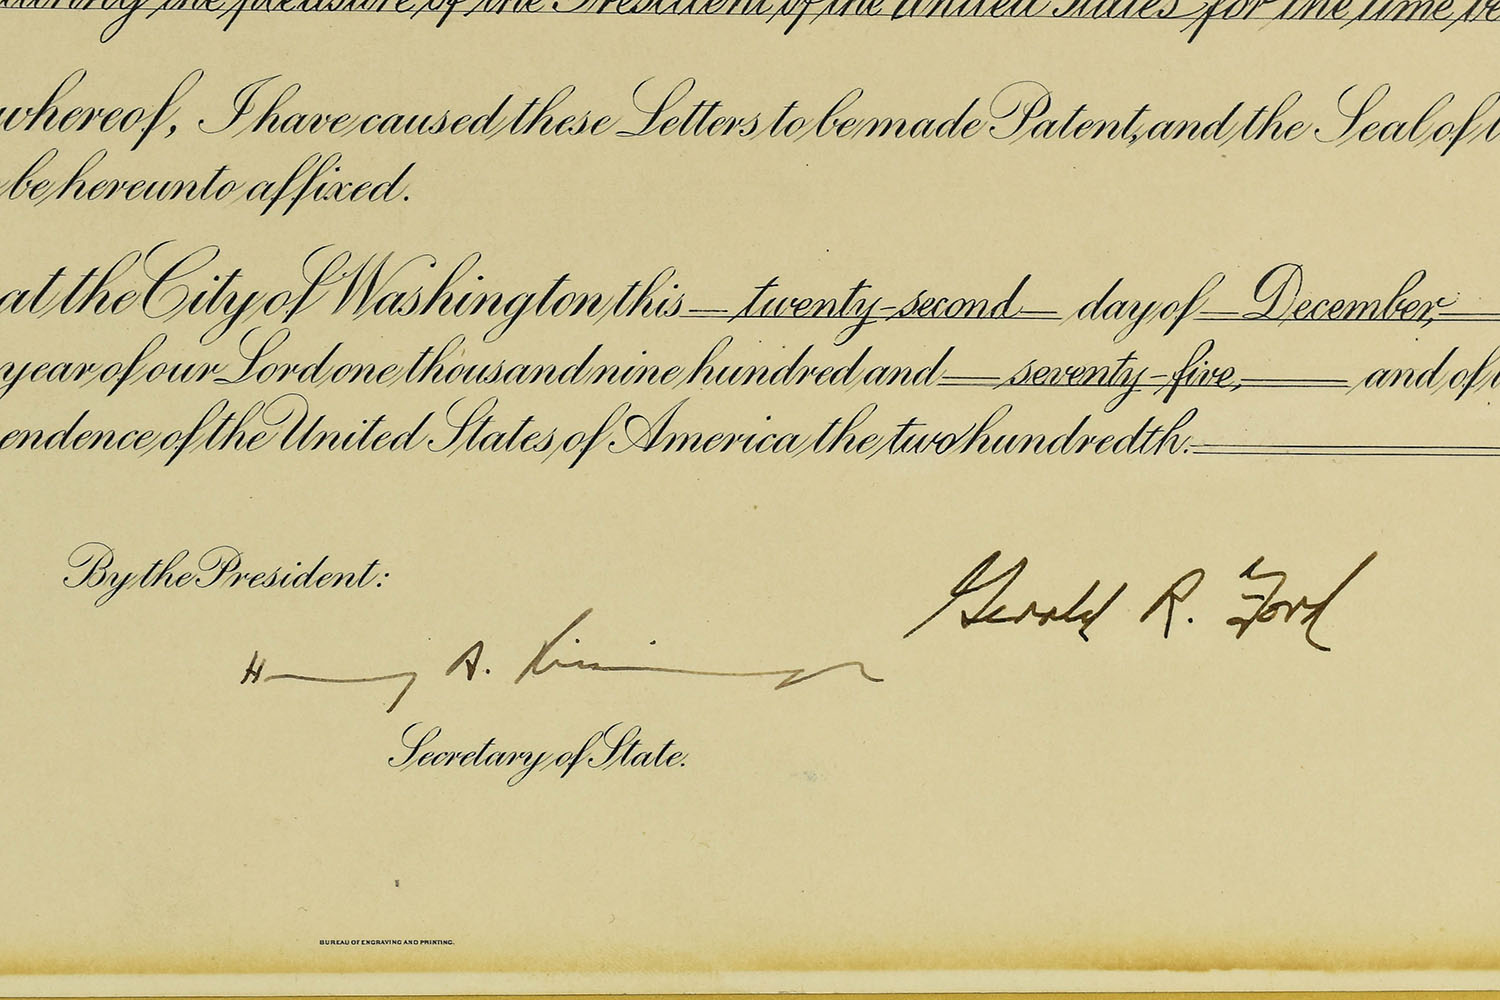 during the pleasure of the President of the United States for the time be
whereof, I have caused these Letters to be made Patent, and the Seal of t
be hereunto affixed.
at the City of Washington this twenty-second day of December,
year of our Lord one thousand nine hundred and seventy-five, and of t
endence of the United States of America the two hundredth.
By the President:
Gerald R. Ford
Henry A. Kissinger
Secretary of State.
BUREAU OF ENGRAVING AND PRINTING.